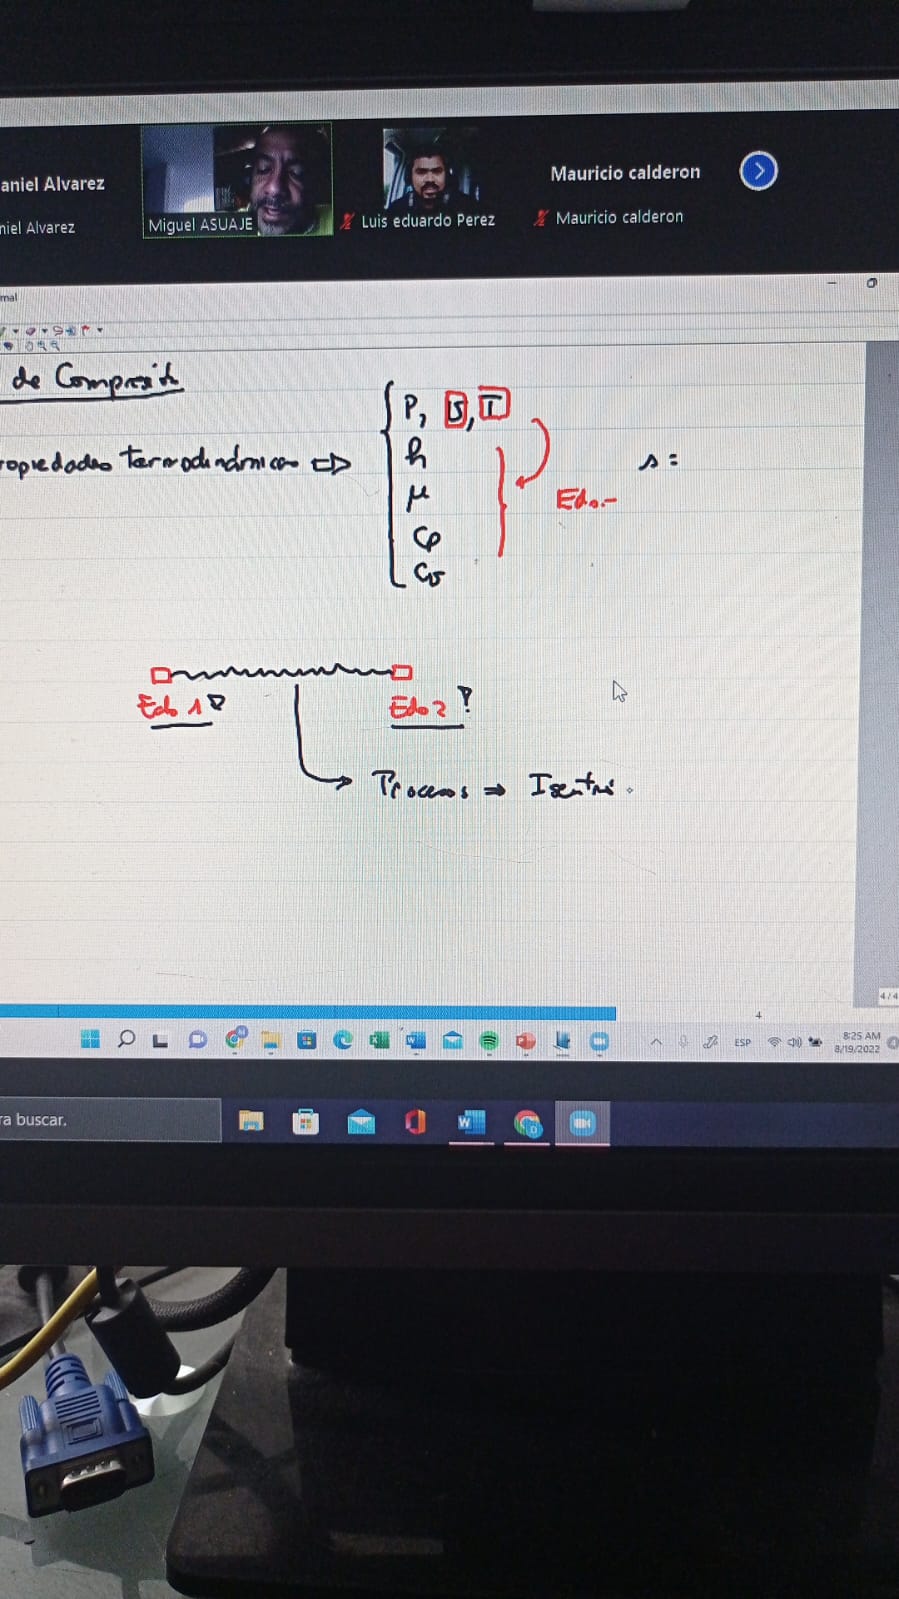 aniel Alvarez
niel Alvarez
Miguel ASUAJE
Luis eduardo Perez
Mauricio calderon
Mauricio calderon
mal
de Compresió
P, S, T
ropiedades termodinámicas ⇨
h
s =
μ
Edo.-
Cp
Cv
Edo 1
Edo 2 ?
Proceso ⇒ Isentró
4/4
4
ESP
8:25 AM
8/19/2022
ra buscar.